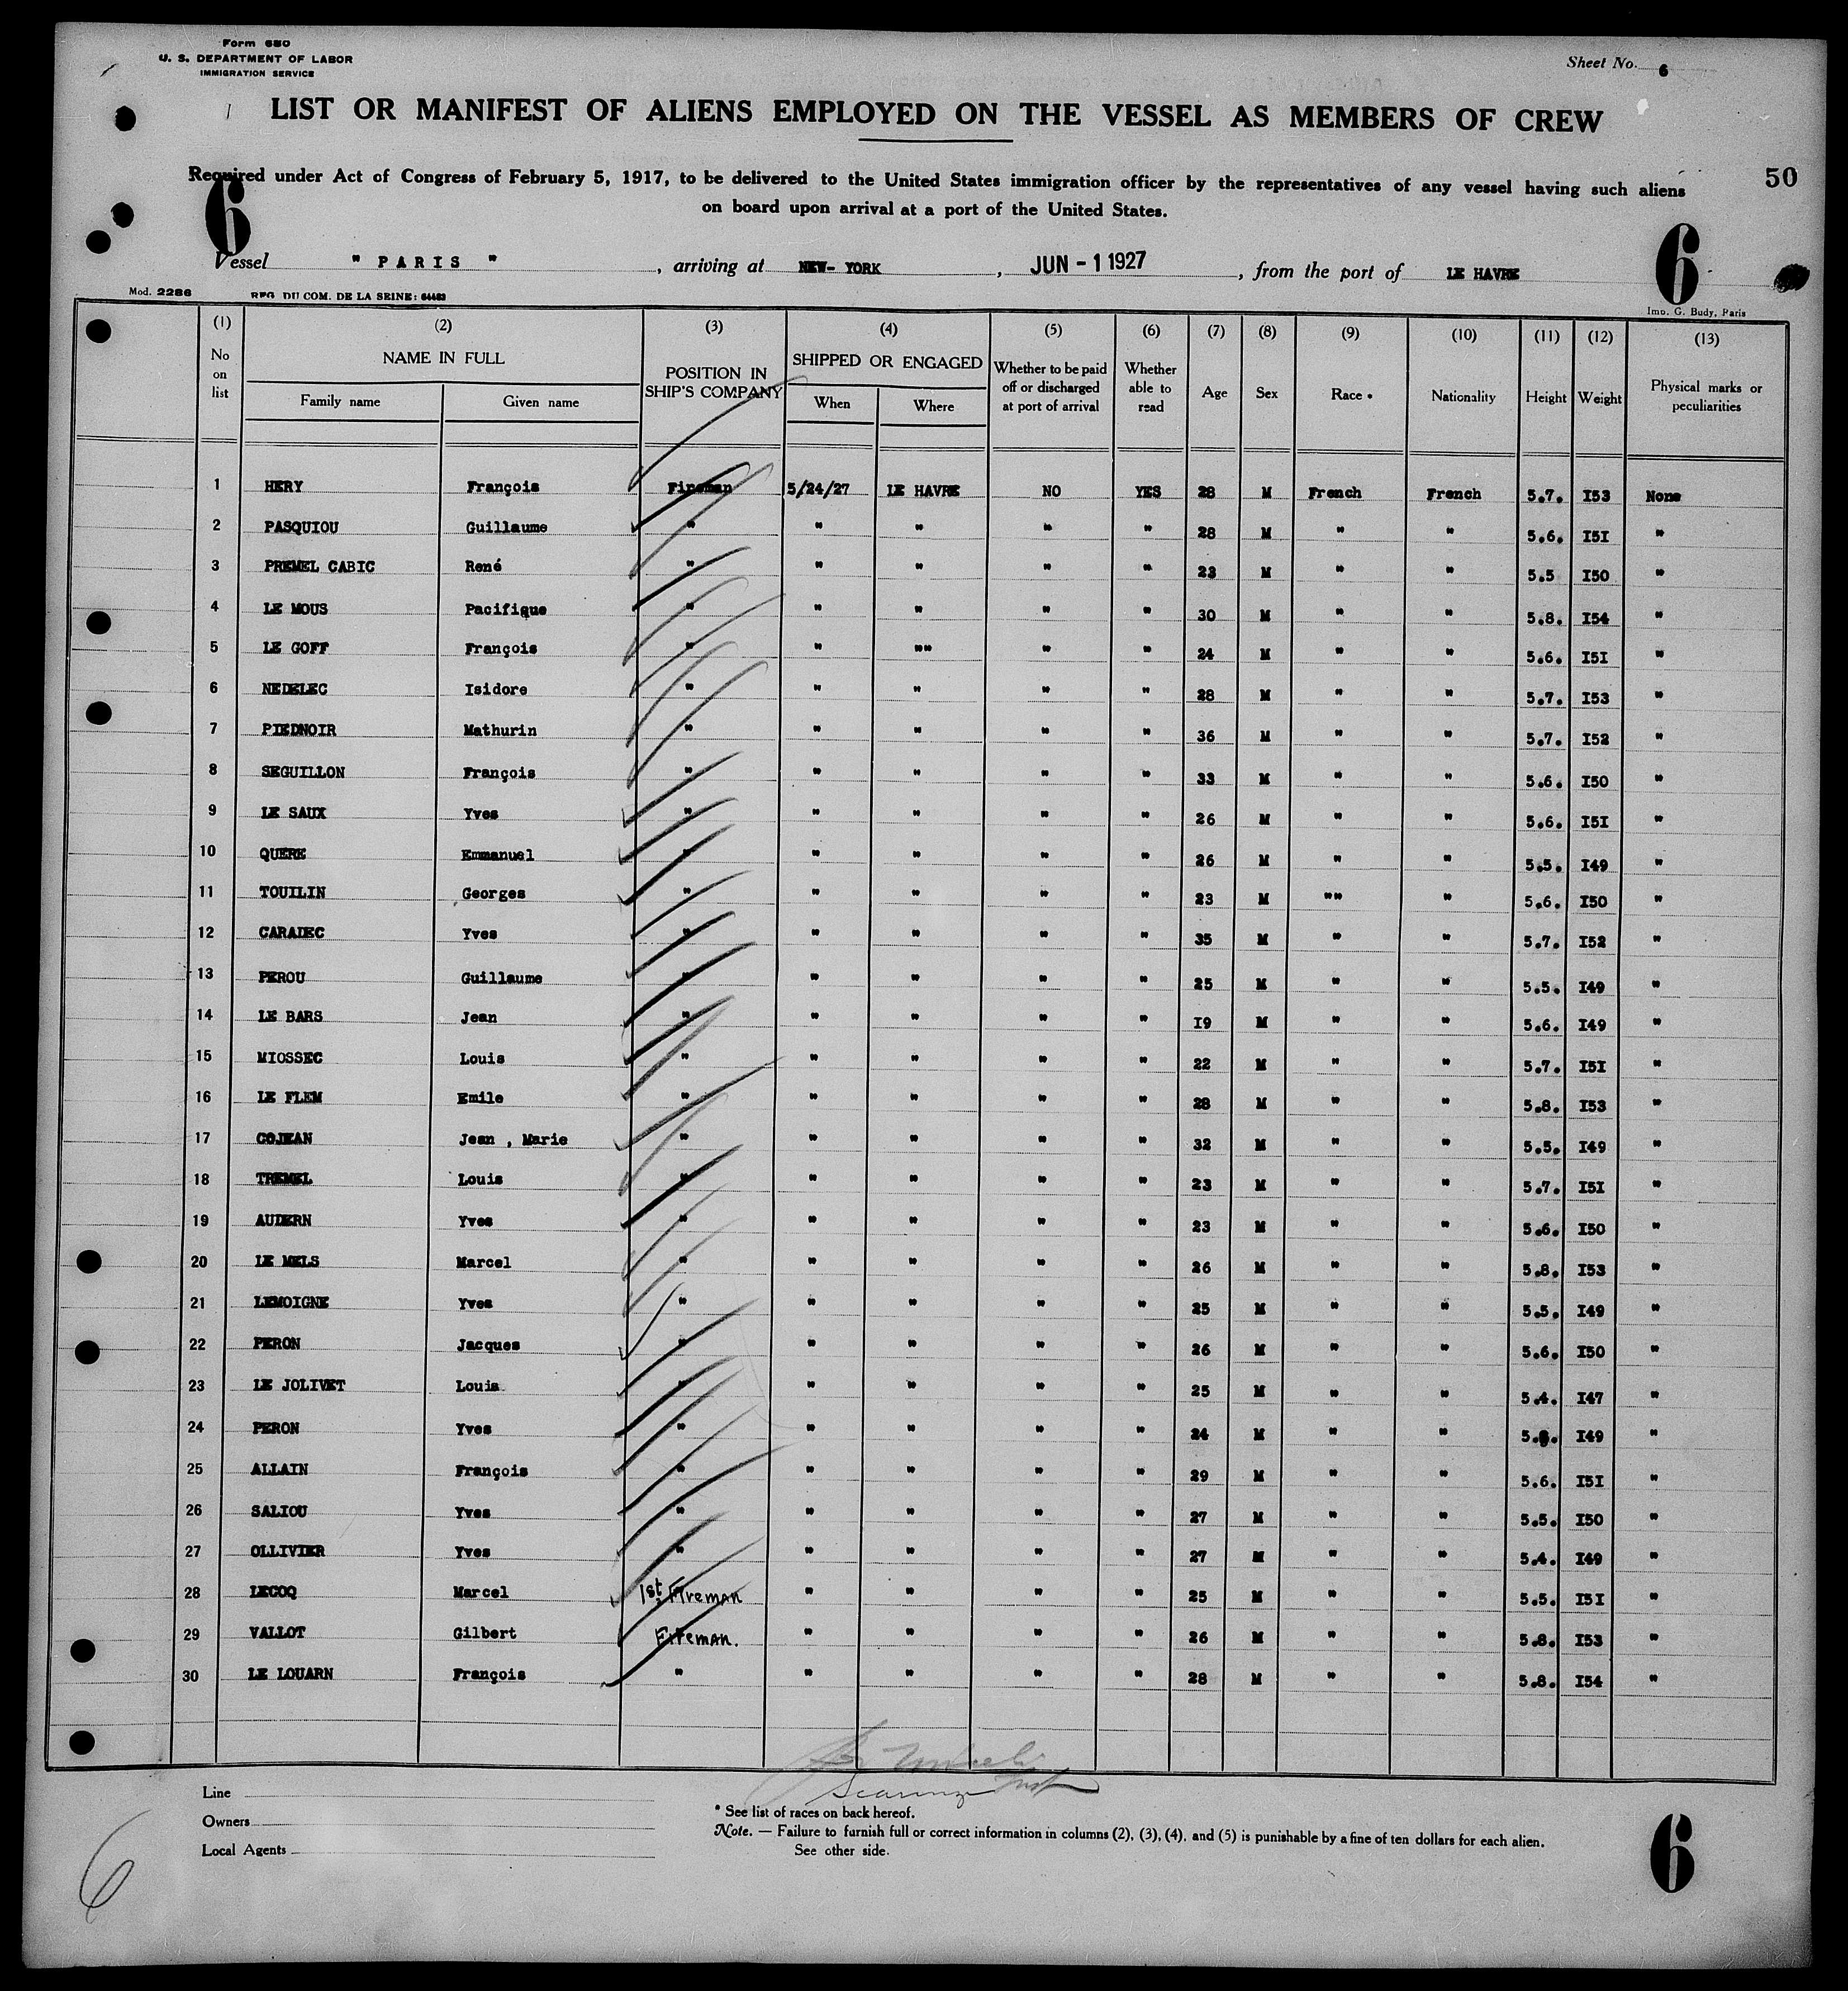 Form 680
U. S. DEPARTMENT OF LABOR
IMMIGRATION SERVICE
Sheet No. 6
LIST OR MANIFEST OF ALIENS EMPLOYED ON THE VESSEL AS MEMBERS OF CREW
50
Required under Act of Congress of February 5, 1917, to be delivered to the United States immigration officer by the representatives of any vessel having such aliens
on board upon arrival at a port of the United States.
6
6
Vessel " PARIS " , arriving at NEW-YORK , JUN - 1 1927 , from the port of LE HAVRE
Mod. 2286 REG. DU COM. DE LA SEINE: 64483
Imp. G. Budy, Paris
(1) (2) (3) (4) (5) (6) (7) (8) (9) (10) (11) (12) (13)
No on list NAME IN FULL POSITION IN SHIP'S COMPANY SHIPPED OR ENGAGED Whether to be paid off or discharged at port of arrival Whether able to read Age Sex Race * Nationality Height Weight Physical marks or peculiarities
Family name Given name When Where
1 HERY François Fireman 5/24/27 LE HAVRE NO YES 28 M French French 5.7. I53 None
2 PASQUIOU Guillaume " " " " " 28 M " " 5.6. I5I "
3 PREMEL CABIC René " " " " " 23 M " " 5.5 I50 "
4 LE MOUS Pacifique " " " " " 30 M " " 5.8. I54 "
5 LE GOFF François " " "" " " 24 M " " 5.6. I5I "
6 NEDELEC Isidore " " " " " 28 M " " 5.7. I53 "
7 PIEDNOIR Mathurin " " " " " 36 M " " 5.7. I52 "
8 SEGUILLON François " " " " " 33 M " " 5.6. I50 "
9 LE SAUX Yves " " " " " 26 M " " 5.6. I5I "
10 QUERE Emmanuel " " " " " 26 M " " 5.5. I49 "
11 TOUILIN Georges " " " " " 23 M "" " 5.6. I50 "
12 CARADEC Yves " " " " " 35 M " " 5.7. I52 "
13 PEROU Guillaume " " " " " 25 M " " 5.5. I49 "
14 LE BARS Jean " " " " " I9 M " " 5.6. I49 "
15 MIOSSEC Louis " " " " " 22 M " " 5.7. I5I "
16 LE FLEM Emile " " " " " 28 M " " 5.8. I53 "
17 COJEAN Jean , Marie " " " " " 32 M " " 5.5. I49 "
18 TREMEL Louis " " " " " 23 M " " 5.7. I5I "
19 AUDERN Yves " " " " " 23 M " " 5.6. I50 "
20 LE MELS Marcel " " " " " 26 M " " 5.8. I53 "
21 LEMOIGNE Yves " " " " " 25 M " " 5.5. I49 "
22 PERON Jacques " " " " " 26 M " " 5.6. I50 "
23 LE JOLIVET Louis " " " " " 25 M " " 5.4. I47 "
24 PERON Yves " " " " " 24 M " " I49 "
25 ALLAIN François " " " " " 29 M " " 5.6. I5I "
26 SALIOU Yves " " " " " 27 M " " 5.5. I50 "
27 OLLIVIER Yves " " " " " 27 M " " 5.4. I49 "
28 LECOQ Marcel 1st Fireman " " " " 25 M " " 5.5. I5I "
29 VALLOT Gilbert Fireman. " " " " 26 M " " 5.8. I53 "
30 LE LOUARN François " " " " " 28 M " " 5.8. I54 "
Line
Owners
Local Agents
* See list of races on back hereof.
Note. — Failure to furnish full or correct information in columns (2), (3), (4), and (5) is punishable by a fine of ten dollars for each alien.
See other side.
6
6